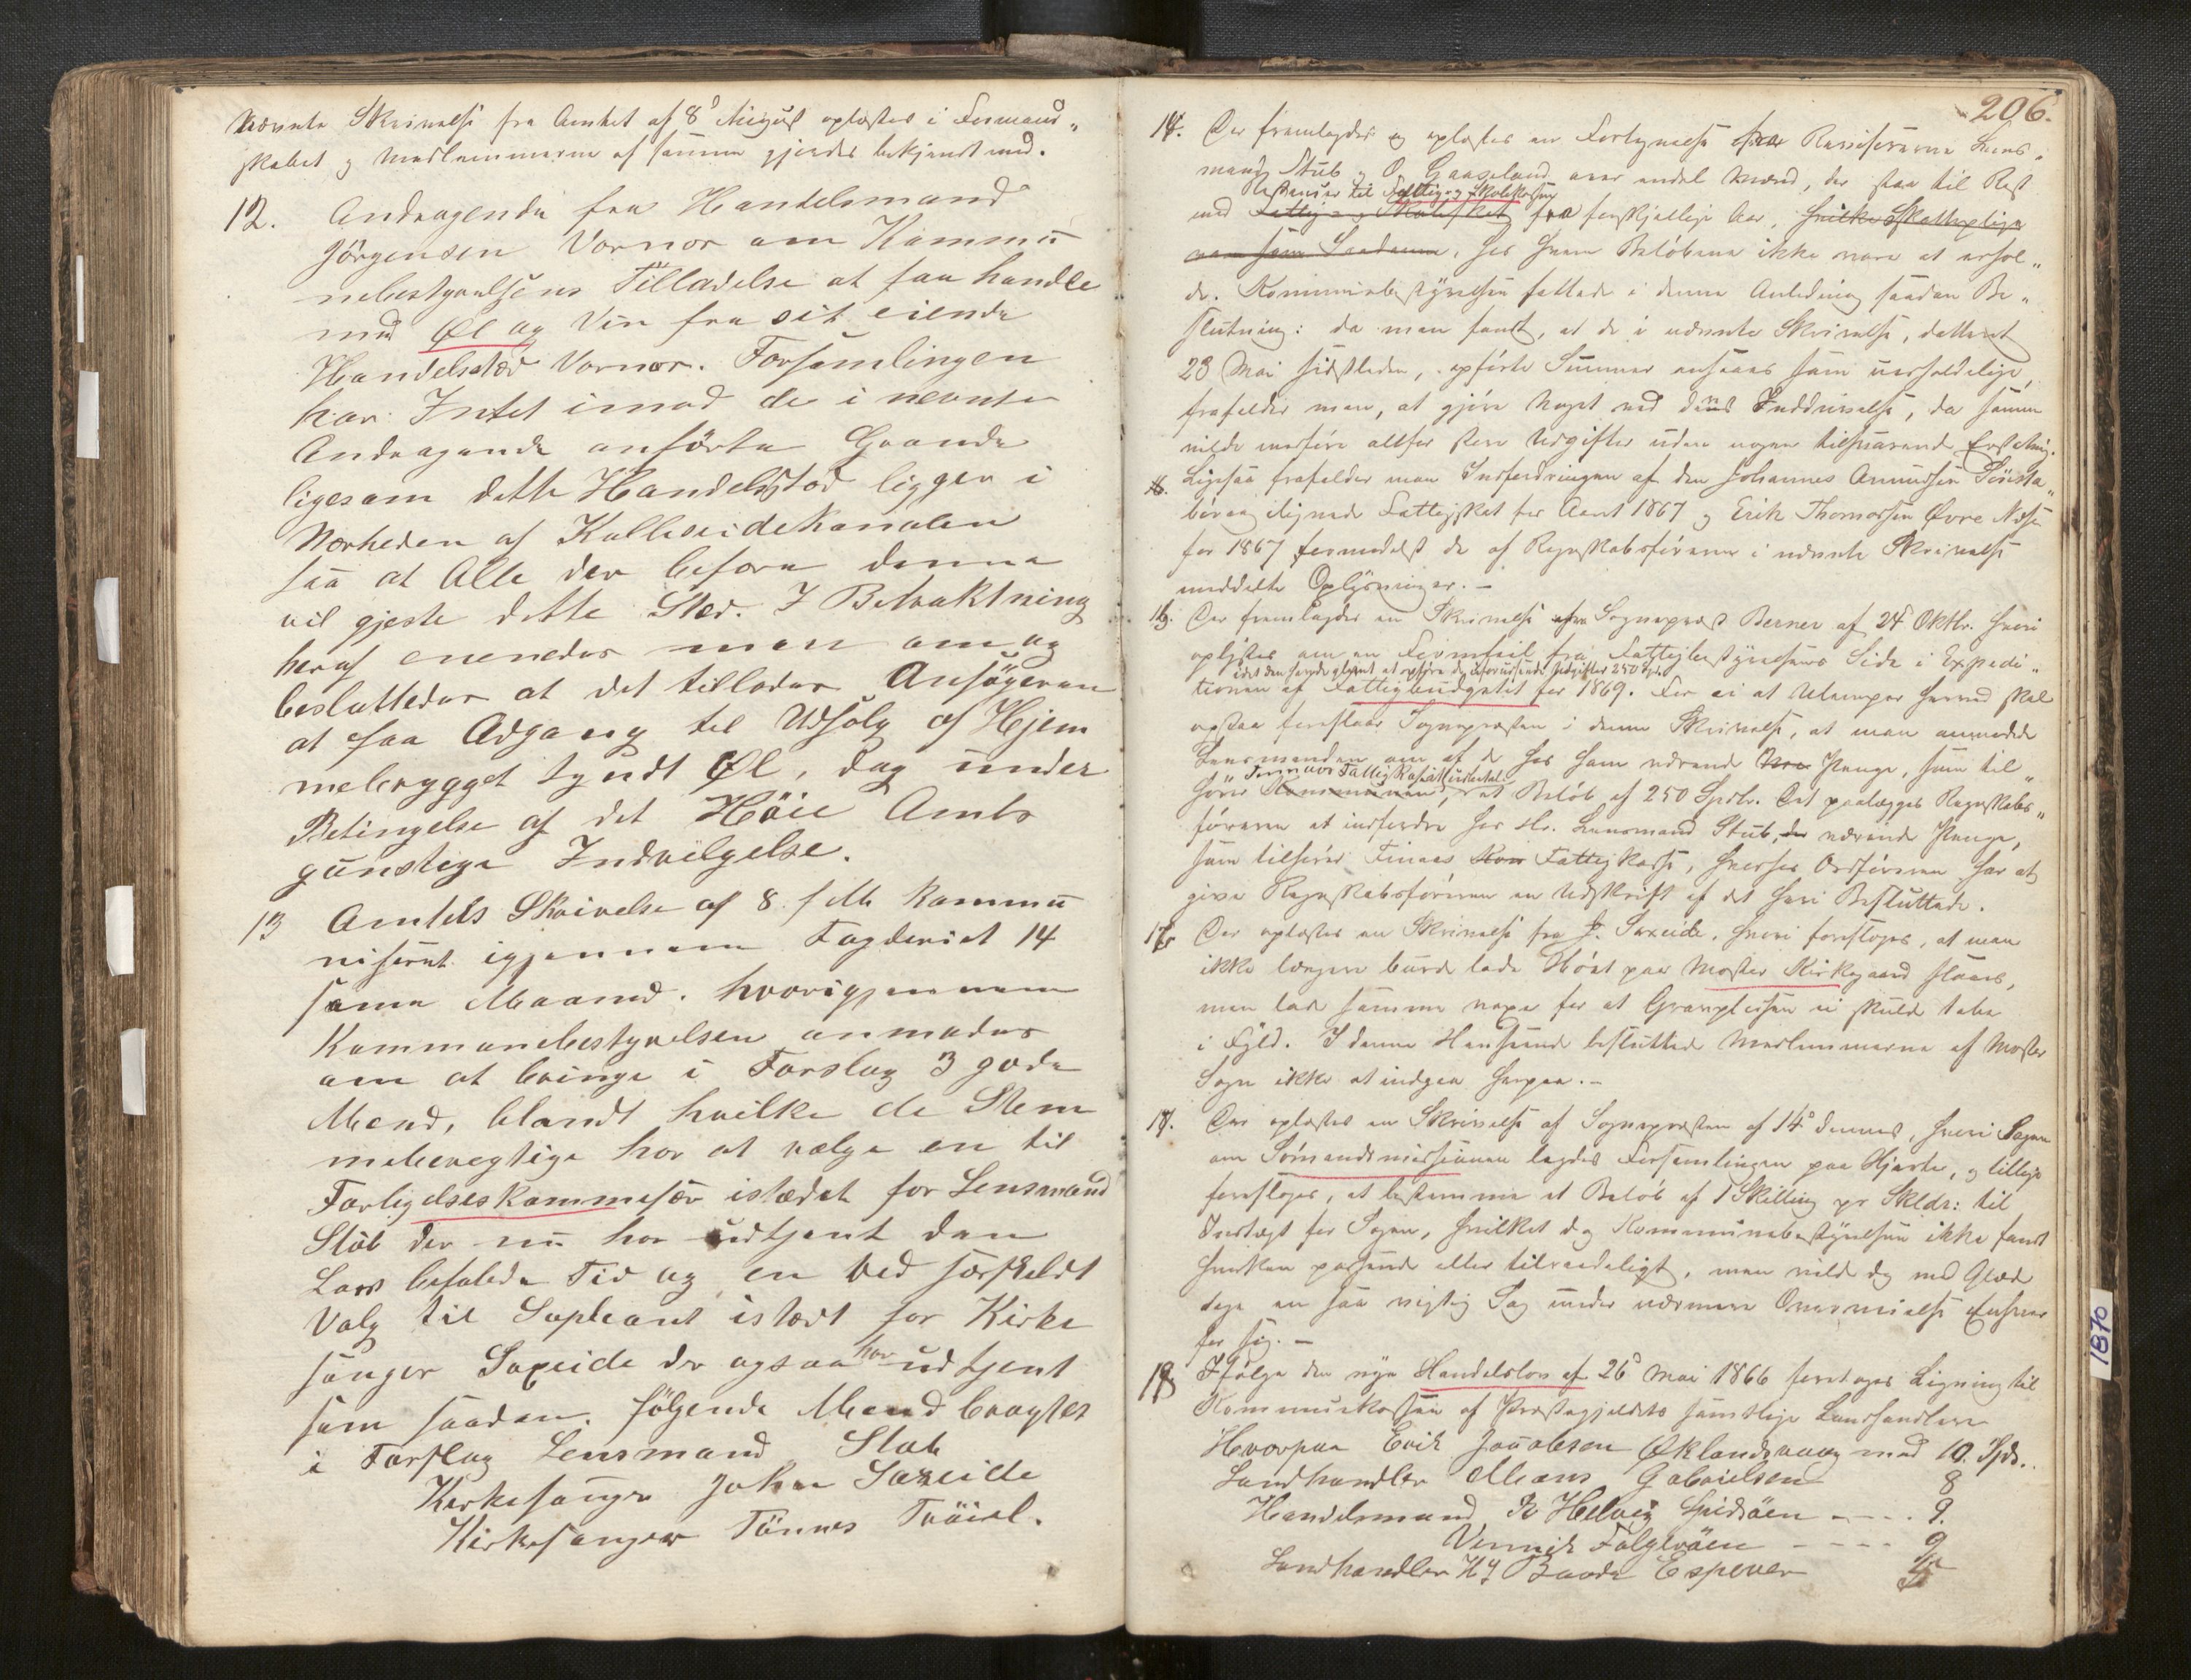 nævnte Skrivelse fra Amtet af 8de August oplæstes i Formand„
skabet og Medlemmerne af samme gjordes bekjendt med.
12. Andragende fra Handelsmand
Jörgensen Vornor om Kommu
nebestyrelsens Tilladelse at faa handle
med Øl og Vin fra sit eiende
Handelsstæd Vornor. Forsamlingen
har Intet imod de i nevnte
Andragende anförte Grunde
ligesom dette Handelsstæd ligger i
Nærheden af Kulleseidekanalen
saa at Alle der befare denne
vil gjeste dette Sted. I Betraktning
heraf enendes man om og
besluttedes at det tillades Ansøgeren
at faa Adgang til Udsalg af Hjem
mebrygget tyndt Øl, dog under
Betingelse af det Höie Amts
gunstige Indvilgelse.
13 Amtets Skrivelse af 8 f Mt kommu
niseret igjennem Fogderiet 14
samme Maaned. hvorigjennem
Kommunebestyrelsen anmodes
om at bringe i Forslag 3 gode
Mænd, blandt hvilke de Stem
meberegtige har at vælge en til
Forligelseskommesær istædet for Lensmand
Stub der nu har udtjent den
Lov befalede Tid og en ved særskeldt
Valg til Supleant istædt for Kirke
sanger Saxeide der ogsaa har udtjent
som saadan. følgende Mænd bragtes
i Forslag Lensmand Stub
Kirkesanger John Saxeide
Kirkesanger Tönnes Tröiel.
206.
14. Der fremlagdes og oplæstes en Fortegnelse fra Revisorerne Lens„
mand Stub og O. Gaaseland over endel Mænd, der staa til Rest
Restancer til Fattig- og Skolekassen
med Fattig- og Skoleskat fra forskjellige Aar, hvilke Skattepligt
som Saadanne, hos hvem Beløbene ikke vare at erhol„
de. Kommunebestyrelsen fattede i denne Anledning saadan Be„
slutning: da man fandt, at de i nævnte Skrivelse, datteret
23 Mai sidstleden, opførte Summer ansaaes som uerholdelige,
frafalder man, at gjøre Noget ved dens Inddrivelse, da samme
vilde medføre altfor store Udgifter uden nogen tilsvarende Erstatning.
15. Ligesaa frafalder man Indfordringen af den Johannes Amundsen Sønsta„
bøvaag ilignede Fattigskat for Aaret 1867 og Erik Thomassen Øvre Næse
for 1867 formedelst de af Regnskabsføreren i nævnte Skrivelse
meddelte Oplysninger. —
16. Der fremlagdes en Skrivelse fra Sogneprest Berner af 24de Oktbr. hvori
oplystes om en Formfeil fra Fattigbestyrelsens Side i Expedi„
idet den havde glemt at opføre de uforudseende Udgifter 250 Spd.
tionen af Fattigbudgetet for 1869. For ei at Ulemper herved skal
opstaa foreslaar Sognepresten i denne Skrivelse, at man anmodede
Lensmanden om af de hos ham værende Penge, som til„
Finnaas Fattigkasse at indbetale
hører Kommunen, et Beløb af 250 Spdlr. Det paalægges Regnskabs„
føreren at indfordre hos Hr. Lensmand Stub, der værende Penge,
som tilhører Finnaas Kom Fattigkasse, hvorfor Ordføreren har at
give Regnskabsføreren en Udskrift af det heri Besluttede.
17. Der oplæstes en Skrivelse fra J. Saxeide, hvori foresloges, at man
ikke længere burde lade Høet paa Moster Kirkegaard slaaes,
men lade samme voxe for at Gravpladsen ei skulde tabe
i Fyld. I denne Henseende besluttede Medlemmerne af Moster
Sogn ikke at indgaa herpaa. —
18. Der oplæstes en Skrivelse af Sognepresten af 14de dennes, hvori Sagen
om Sømandsmissionen lagdes Forsamlingen paa Hjerte, og tillige
foresloges, at bestemme et Beløb af 1 Skilling pr Skldr: til
Indtægt for Sagen, hvilket dog Kommunebestyrelsen ikke fandt
hverken passende eller tilraadeligt, men vilde dog med Glæde
tage en saa vigtig Sag under nærmere Overveielse Enhver
for sig. —
19 Ifølge den nye Handelslov af 26de Mai 1866 foretoges Ligning til
Kommunekassen af Prestegjeldets samtlige Landhandlere
Hvorpaa Erik Jacobsen Øklandsvaag med 10. Spd.
Landhandler Mons Gabrielsen 8
Handelsmand R Helvig Spidsöen - - - - 9.
Vennik Folgeröen - - - - 9
Landhandler Hy Baade Espever
1870